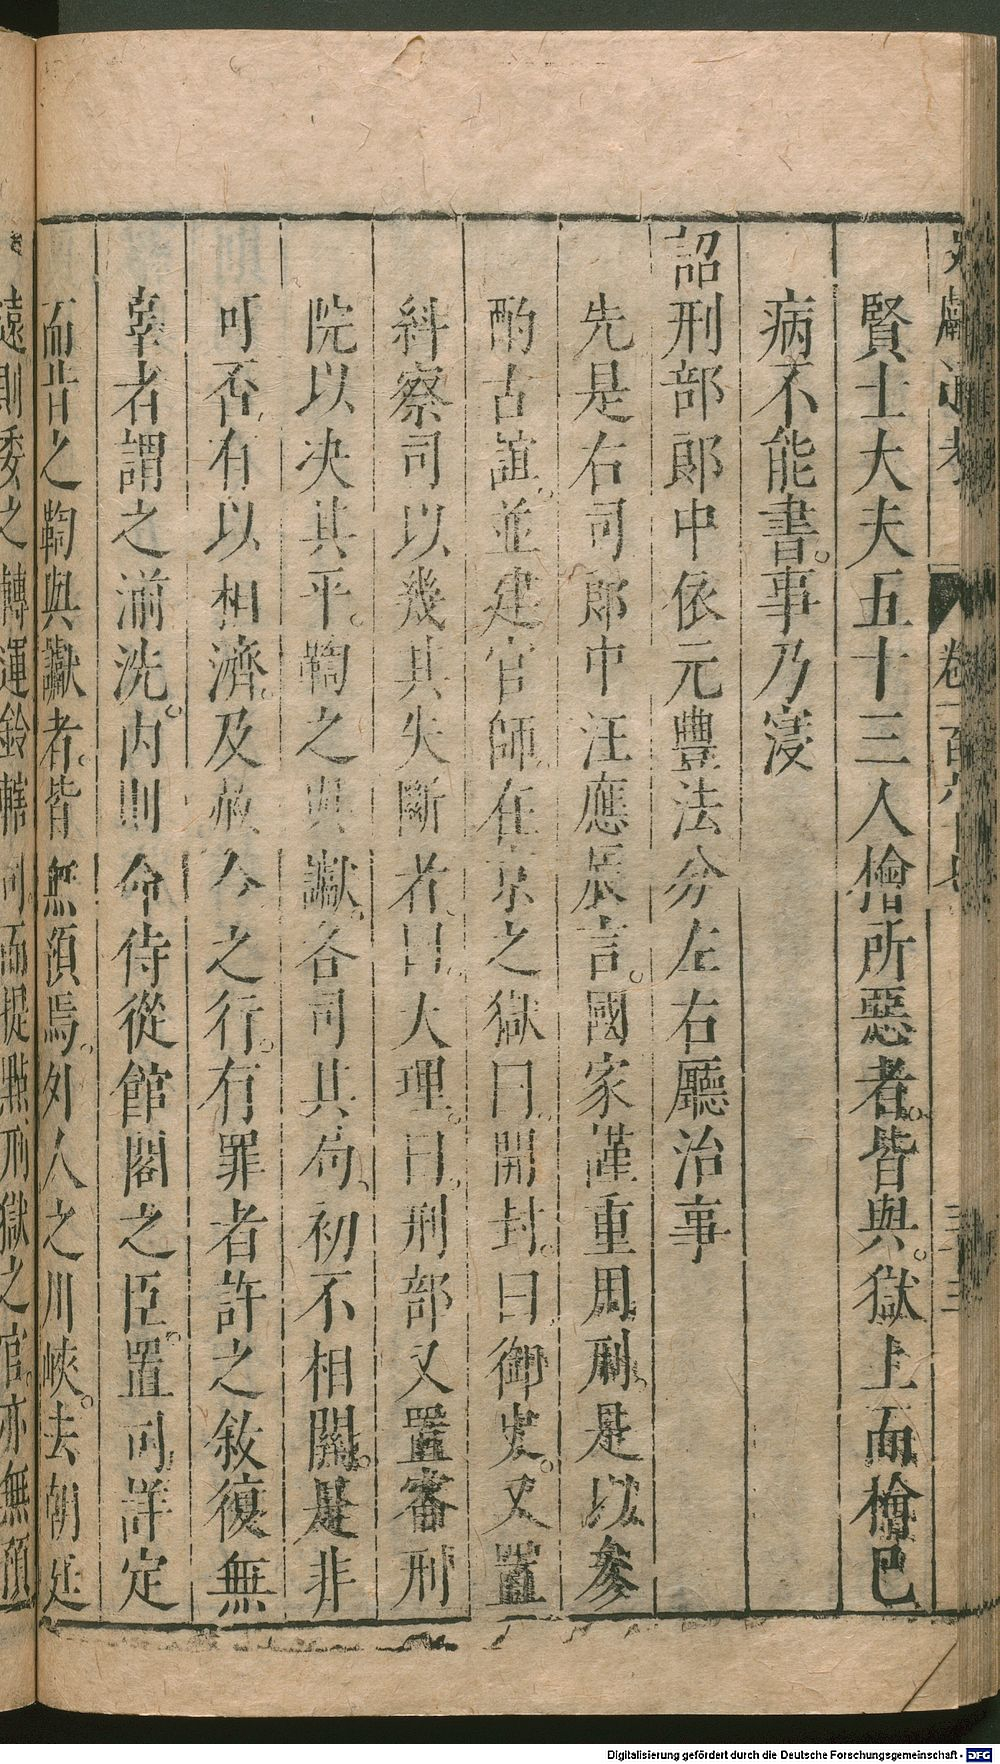 賢士大夫五十三人檜所惡者皆與獄上而檜已
病不能書事乃寖
詔刑部郎中依元豐法分左右廳治事
先是右司郎中汪應辰言國家謹重用刑是以參
酌古誼並建官師在京之獄曰開封曰御史又置
糾察司以幾其失斷者曰大理曰刑部又置審刑
院以决其平鞫之與讞各司其局初不相關是非
可否有以相濟及赦令之行有罪者許之敘復無
辜者謂之湔洗内則命侍從館閣之臣置司詳定
而昔之鞫與讞者皆無預焉外人之川峽去朝廷
遠則委之轉運鈐轄司而提點刑獄之官亦無預
Digitalisierung gefördert durch die Deutsche Forschungsgemeinschaft - DFG